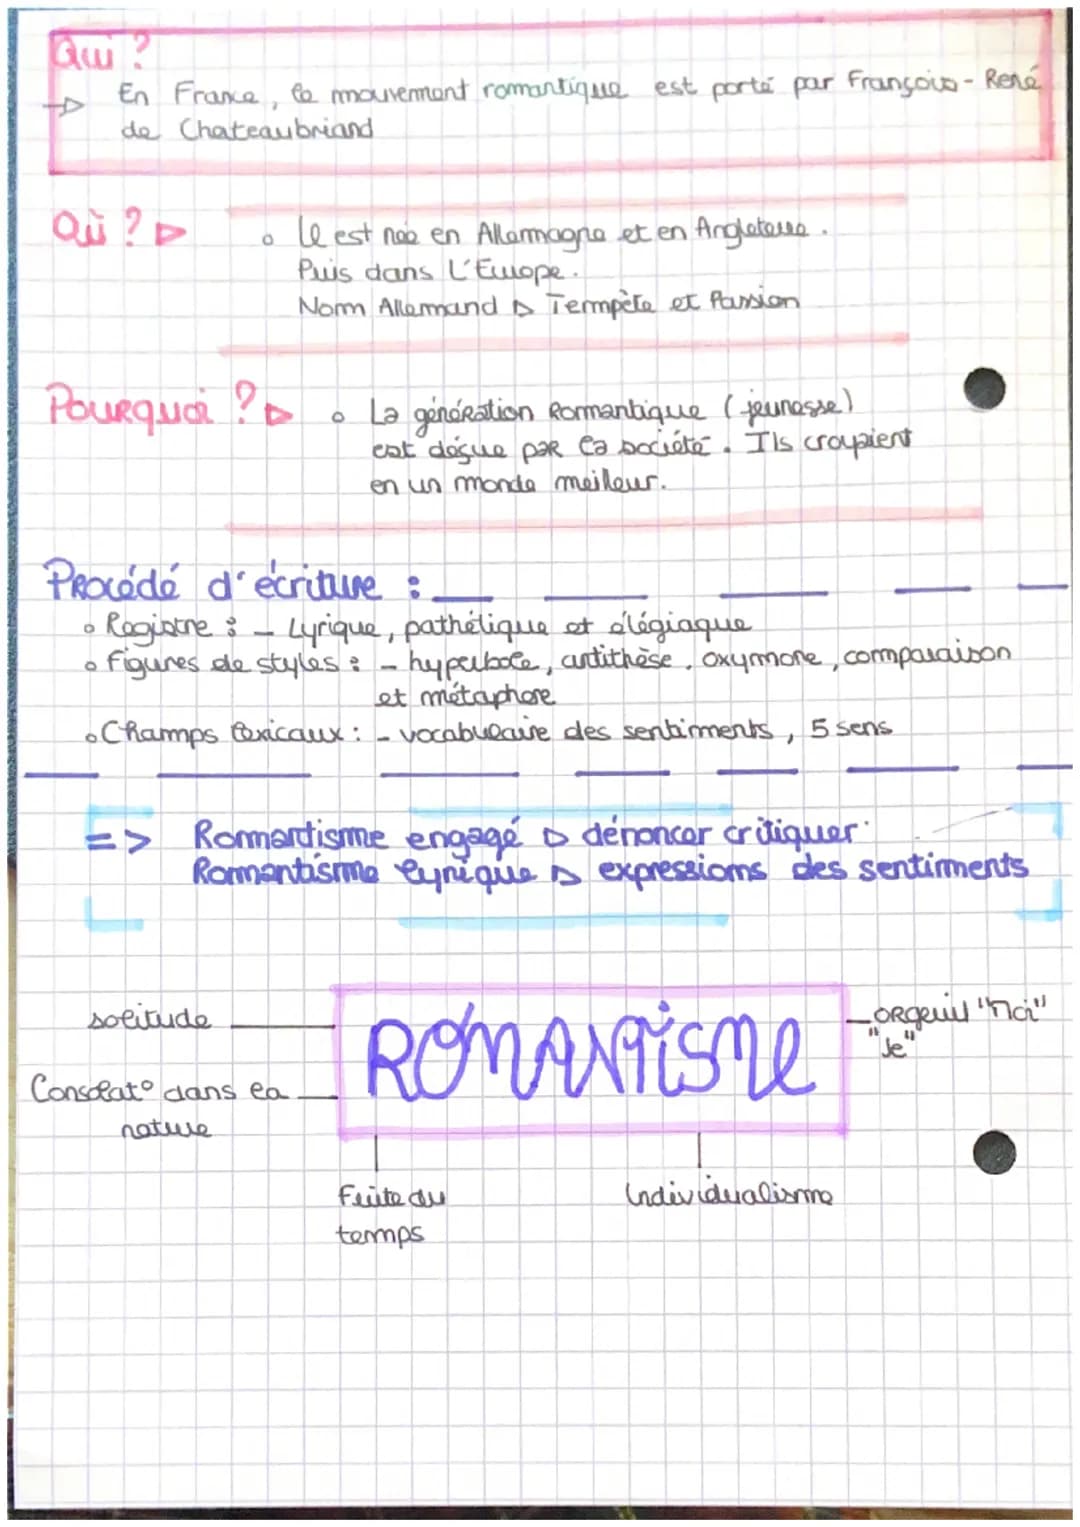 Qui ?
→ En France, le mouvement romantique est porté par François-René
de Chateaubriand
Où ? ▷
o Il est née en Allemagne et en Angleterre.
Puis dans L'Europe.
Nom Allemand ▷ Tempête et Passion
Pourquoi ? ▷
o La génération Romantique (jeunesse)
est désue par la société. Ils croyaient
en un monde meilleur.
Procédé d'écriture :
o Registre : - Lyrique, pathélique et élégiaque
o Figures de styles : - hyperbole, antithèse, oxymore, comparaison
et métaphore
o Champs lexicaux : - vocabulaire des sentiments, 5 sens
=> Romantisme engagé ▷ dénoncer critiquer
Romantisme lyrique ▷ expressions des sentiments
solitude
ROMANTISME
orgeuil "moi"
"Je"
Consolat° dans la
nature
Fuite du
temps
Individualisme